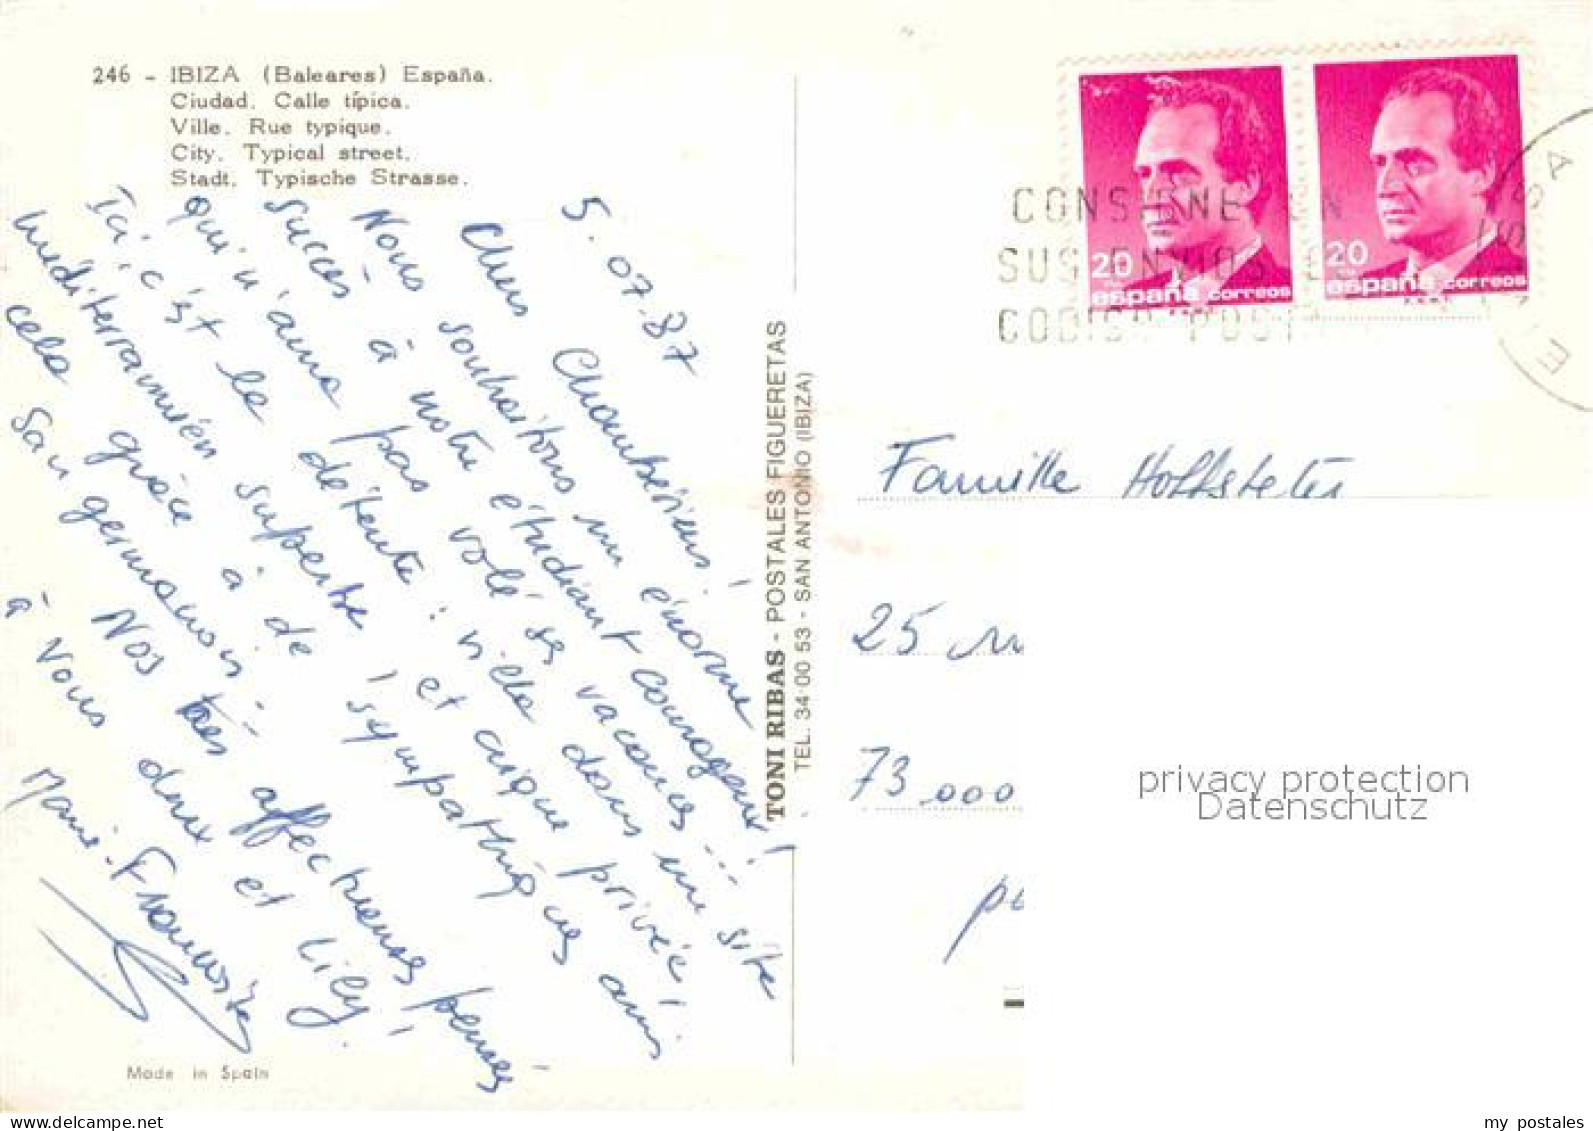 246 - IBIZA (Baleares) España.
Ciudad. Calle típica.
Ville. Rue typique.
City. Typical street.
Stadt. Typische Strasse.
5.07.87
Chers Chambériens!
Nous souhaitons un énorme
succès à notre étudiant courageux!
qui n'aura pas volé ses vacances...
Ici, c'est la détente: villa dans un site
méditerranéen superbe, et crique privée!
cela grâce à de sympathiques amis
San germanois.
Nos très affectueuses pensées
à vous deux et Lily!
Marie-Françoise
Made in Spain
TONI RIBAS - POSTALES FIGUERETAS
TEL. 34 00 53 - SAN ANTONIO (IBIZA)
20
españa correos
20
españa correos
CONSIGNE EN
SUS ENVIOS
CODIGO POST
Famille Hoffsteter
25
73.000
privacy protection
Datenschutz
my postales